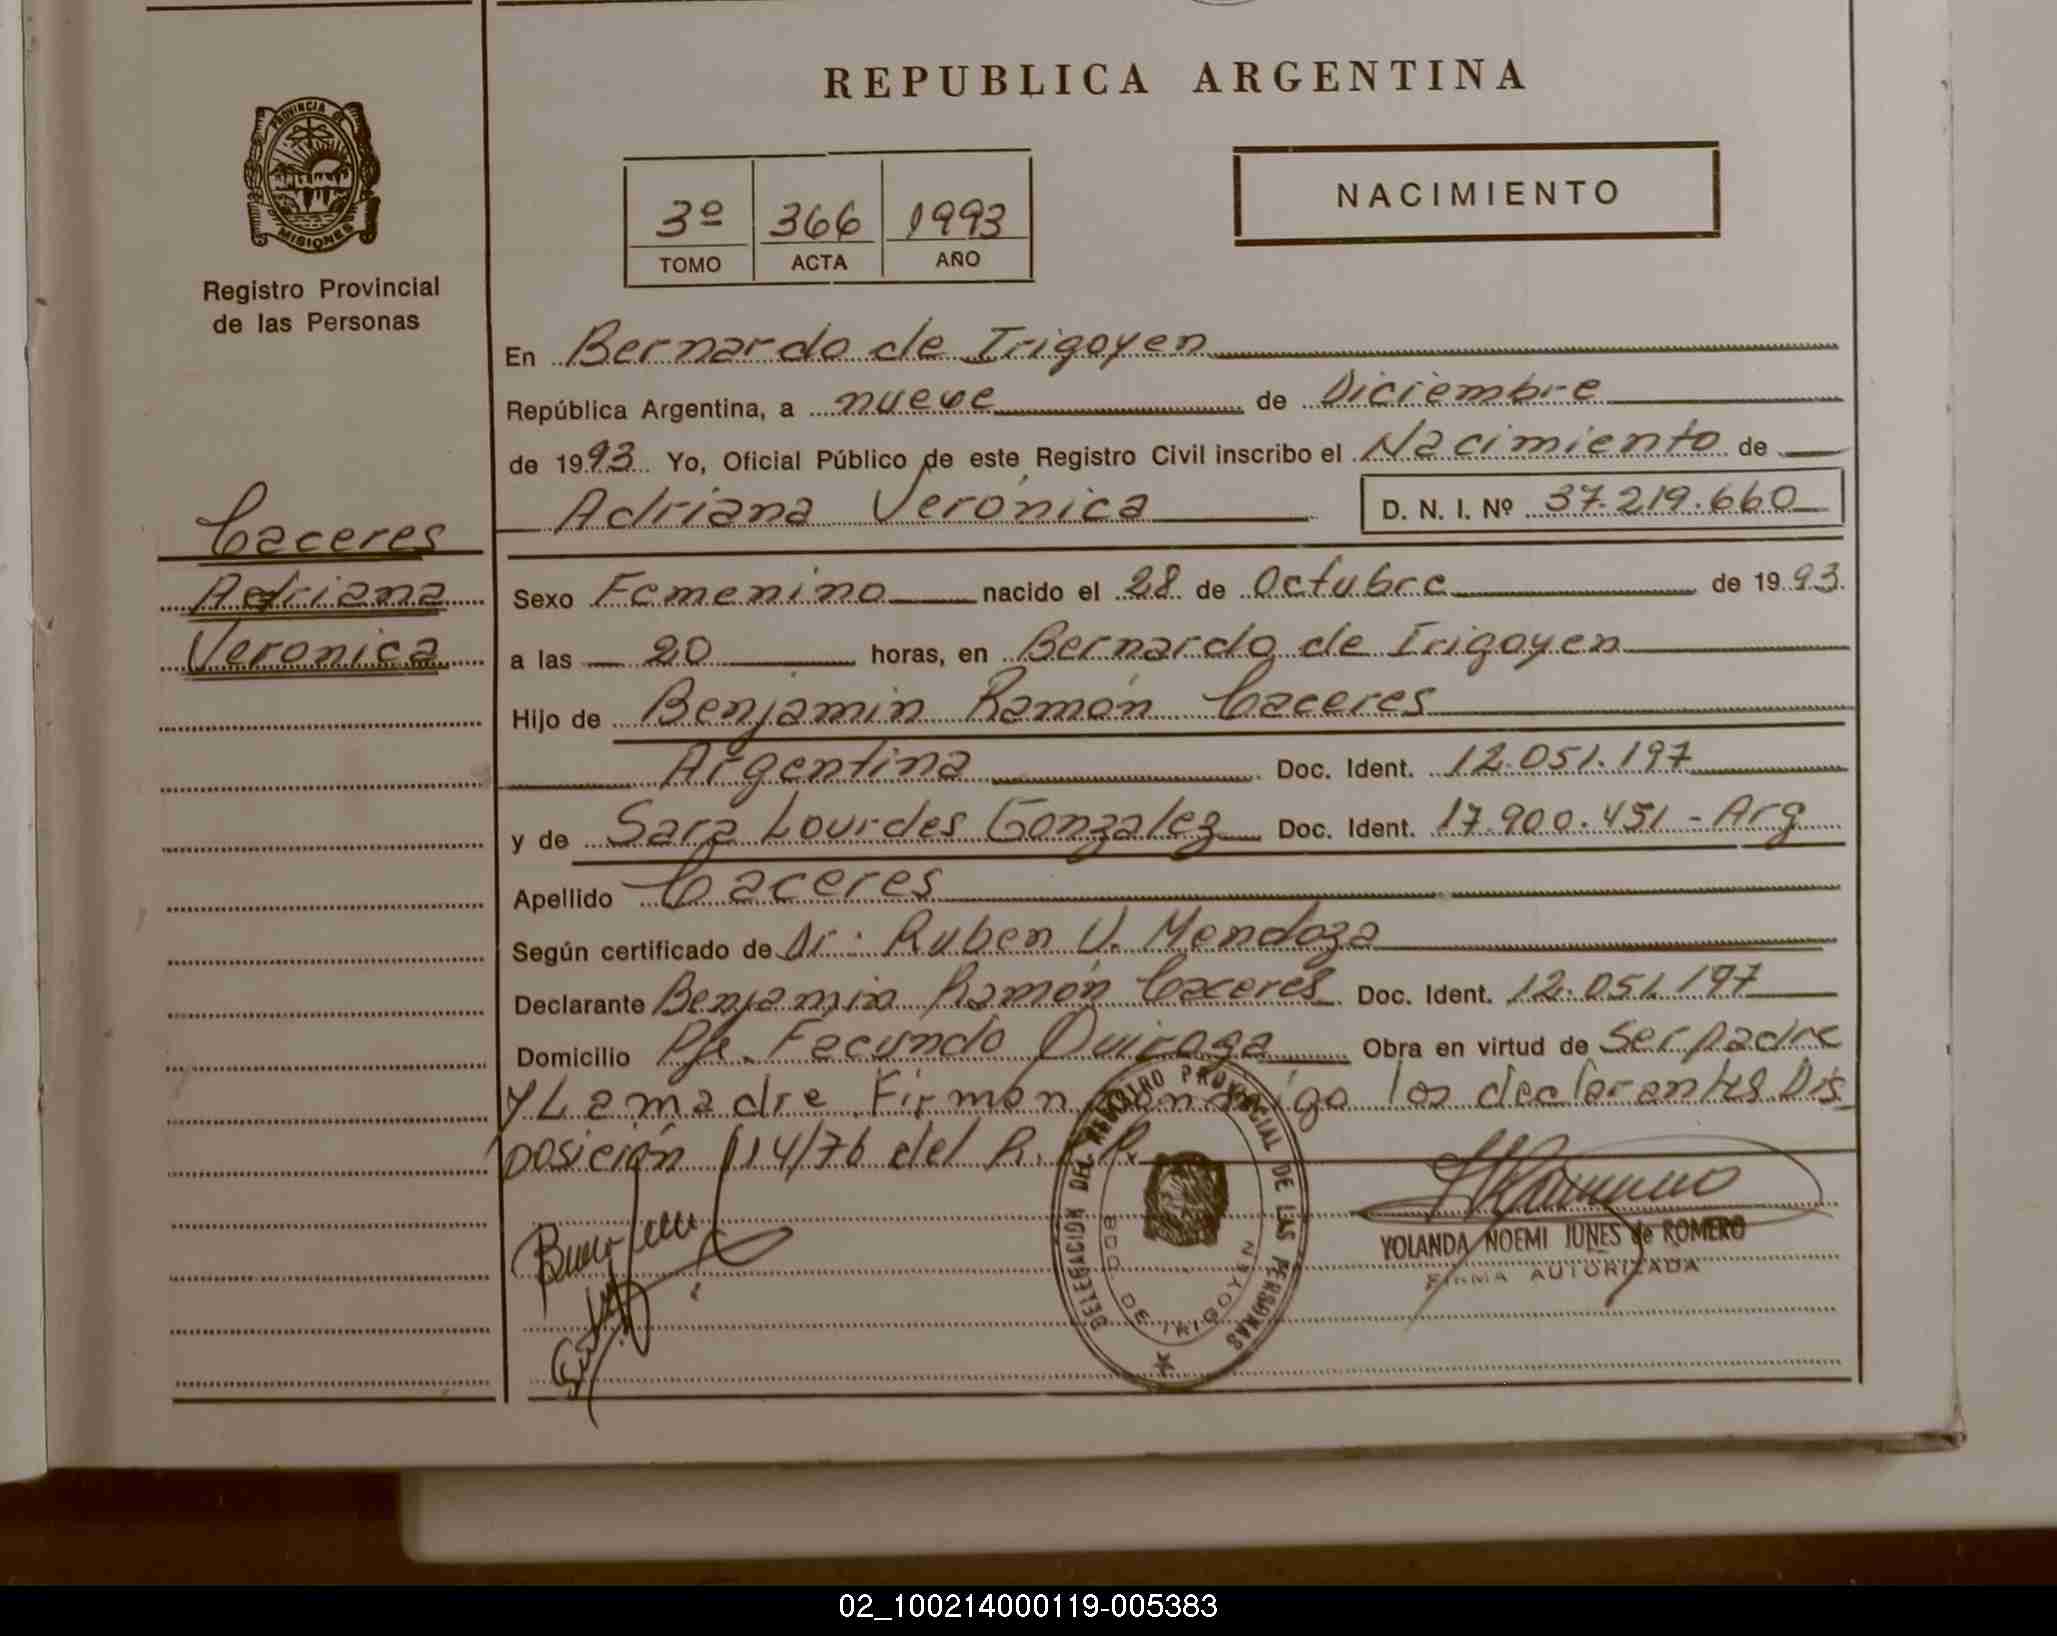 REPUBLICA ARGENTINA
PROVINCIA DE
MISIONES
Registro Provincial
de las Personas
3º 366 1993
TOMO ACTA AÑO
NACIMIENTO
Caceres
Adriana
Veronica
En Bernardo de Irigoyen
República Argentina, a nueve de Diciembre
de 1993 Yo, Oficial Público de este Registro Civil inscribo el Nacimiento de
Adriana Verónica D. N. I. Nº 37.219.660
Sexo Femenino nacido el 28 de Octubre de 1993.
a las 20 horas, en Bernardo de Irigoyen
Hijo de Benjamin Ramón Caceres
Argentina Doc. Ident. 12.051.197
y de Sara Lourdes Gonzalez Doc. Ident. 17.900.451 - Arg
Apellido Caceres
Según certificado de Dr. Ruben V. Mendoza
Declarante Benjamin Ramón Caceres Doc. Ident. 12.051.197
Domicilio Pje. Facundo Quiroga Obra en virtud de ser padre
y La madre Firman conmigo los declarantes Dis
posición 114/76 del R.P.P.
DELEGACION DEL REGISTRO PROVINCIAL DE LAS PERSONAS
BDO. DE IRIGOYEN
YOLANDA NOEMI JUNES de ROMERO
FIRMA AUTORIZADA
02_100214000119-005383